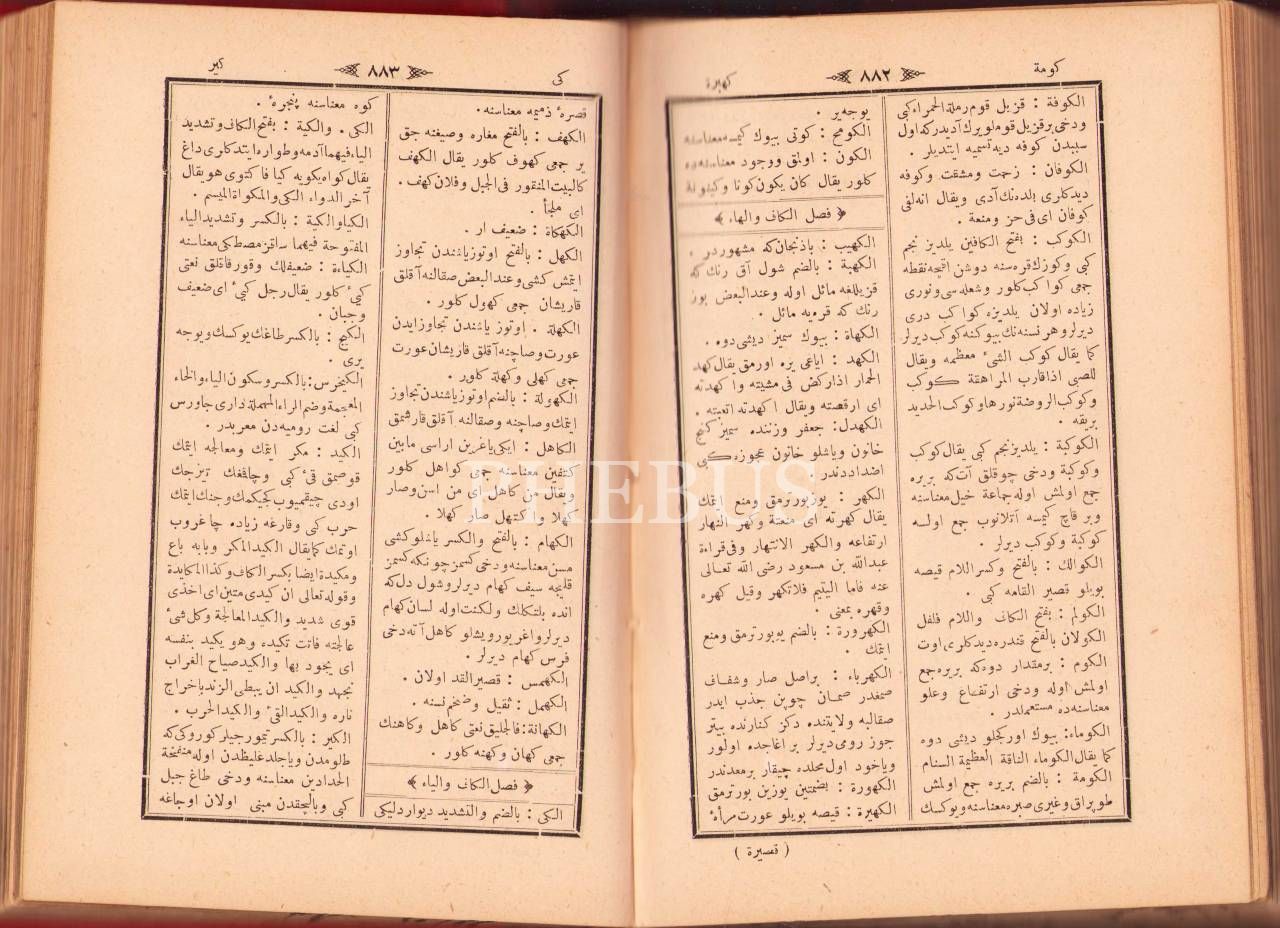 كومة
٨٨٢
كهيرة
الكوفة : قزيل قوم رملة الحمراء كبى
ودخى بر قزيل قوملو يرك آديدركه اول
سببدن كوفه ديه تسميه ايتديلر .
الكوفان : زحمت ومشقت وكوفه
ديدكلرى بلده نك آدى ويقال انه لفى
كوفان اى فى حرز ومنعة .
الكوكب : بفتح الكافين يلديز نجم
كبى وكوزك قره سنه دوشن اقيجه نقطه
جمعى كواكب كلور وشعله سى ونورى
زياده اولان يلديزه كواكب درى
ديرلر وهر نسنه نك بيوكنه كوكب ديرلر
كما يقال كوكب الشىء معظمه ويقال
للصبى اذا قارب المراهقة كوكب
وكوكب الروضة نورها وكوكب الحديد
بريقه .
الكوكبة : يلديز نجم كبى يقال كوكب
وكوكبة ودخى چوقلق آت كه بريره
جمع اولمش اوله جماعة خيل معناسنه
وبر قاچ كيمسه آتلانوب جمع اولسه
كوكبة وكوكب ديرلر .
الكوالك : بالفتح وكسر اللام قيصه
بويلو قصير القامه كبى .
الكولم : بفتح الكاف واللام فلفل
الكولان بالفتح قندره ديدكلرى اوت
الكوم : بر مقدار دوه كه بريره جمع
اولمش اوله ودخى ارتفاع وعلو
معناسنه ده مستعملدر .
الكوماء : بيوك اوركجلو ديشى دوه
كما يقال الكوماء الناقة العظيمة السنام
الكومة : بالضم بريره جمع اولمش
طوپراق وغيرى صبره معناسنه ويوكسك
يوجه ير .
الكومح : كوتى بيوك كيمسه معناسنه
الكون : اولمق ووجود معناسنه ده
كلور يقال كان يكون كونا وكينونة
﴿ فصل الكاف والهاء ﴾
الكهيب : باذنجان كه مشهوردر .
الكهبة : بالضم شول آق رنك كه
قزيللغه مائل اوله وعند البعض بوز
رنك كه قره يه مائل .
الكهاة : بيوك سميز ديشى دوه .
الكهد : اياغى يره اورمق يقال كهد
الحمار اذا ركض فى مشيته واكهدته
اى ارقصته ويقال اكهدته اتعبته .
الكهدل : جعفر وزننده سميز كنج
خاتون وياشلو خاتون عجوزه كبى
اضداددندر .
الكهر : يوز بورترمق ومنع ايتمك
يقال كهرته اى منعته وكهر النهار
ارتفاعه والكهر الانتهار وفى قراءة
عبدالله بن مسعود رضى الله تعالى
عنه فاما اليتيم فلا تكهر وقيل كهره
وقهره بمعنى .
الكهرورة : بالضم يوز بورترمق ومنع
ايتمك .
الكهرباء : براصل صارو شفاف
صمغدر صمان چوپن جذب ايدر
صقالبه ولايتنده دكز كنارنده بيتر
جوز رومى ديرلر بر اغاجده اولور
وياخود اول محلده چيقار بر معدندر
الكهورة : بضمتين يوزين بورترمق
الكهيرة : قيصه بويلو عورت مرأة
( قصيرة )
كى
٨٨٣
كير
قصرهٔ ذميمه معناسنه.
الكهف : بالفتح مغاره وصيغنه جق
ير جمعى كهوف كلور يقال الكهف
كالبيت المنقور فى الجبل وفلان كهف.
اى ملجأ .
الكهكاة : ضعيف ار .
الكهل : بالفتح اوتوز ياشندن تجاوز
ايتمش كشى وعند البعض صقالنه آقلق
قاريشان جمعى كهول كلور .
الكهلة . اوتوز ياشندن تجاوز ايدن
عورت وصاچنه آقلق قاريشان عورت
جمعى كهلى وكهلة كلور .
الكهولة : بالضم اوتوز ياشندن تجاوز
ايتمك وصاچنه وصقالنه آقلق قارشمق
الكاهل : ايكى ياغرين اراسى مابين
كتفين معناسنه جمعى كواهل كلور
ويقال من كاهل اى من اسن وصار
كهلا واكتهل صار كهلا .
الكهام : بالفتح والكسر ياشلو كشى
مسن معناسنه ودخى كسمز چونكه كسمز
قليجه سيف كهام ديرلر وشول دل كه
انده بلتكلك ولكنت اوله لسان كهام
ديرلر واغر يوريشلو كاهل آته دخى
فرس كهام ديرلر .
الكهمس : قصير القد اولان .
الكهمل : ثقيل وضخم نسنه .
الكهانة : فالجليق نعتى كاهل وكاهنك
جمعى كهان وكهنه كلور .
﴿ فصل الكاف والياء ﴾
الكى : بالضم والتشديد ديوار دليكى
كوه معناسنه پنجره .
الكى . والكية : بفتح الكاف وتشديد
الياء فيهما آدمه وطواره ايتدكلرى داغ
يقال كواه يكويه كيا فاكتوى هو يقال
آخر الدواء الكى والمكواة الميسم .
الكيا والكية : بالكسر وتشديد الياء
المفتوحة فيهما ساقز مصطكى معناسنه
الكياءة : ضعيفلك وقورقاقلق نعتى
كيئ كلور يقال رجل كيئ اى ضعيف
وجبان .
الكيح : بالكسر طاغك يوكسك ويوجه
يرى .
الكيخرس : بالكسر وسكون الياء والخاء
المعجمة وضم الراء المهملة دارى جاورس
كبى لغت روميه دن معربدر .
الكيد : مكر ايتمك ومعالجه ايتمك
قوصمق قئ كبى وچاقمغك تيزجك
اودى چيقميوب كجيكمك وجنك ايتمك
حرب كبى وقارغه زياده چاغروب
اوتمك كما يقال الكيد المكر وبابه باع
ومكيدة ايضا بكسر الكاف وكذا المكايدة
وقوله تعالى ان كيدى متين اى اخذى
قوى شديد والكيد المعالجة وكل شىء
عالجته فانت تكيده وهو يكيد بنفسه
اى يجود بها والكيد صياح الغراب
نجهد والكيد ان يبطى الزند باخراج
ناره والكيد القئ والكيد الحرب .
الكير : بالكسر تيمورجيلر كوروكى كه
طلومدن وياجلد غليظدن اوله منفخة
الحدادين معناسنه ودخى طاغ جبل
كبى وبالچقدن مبنى اولان اوجاغه
PHEBUS